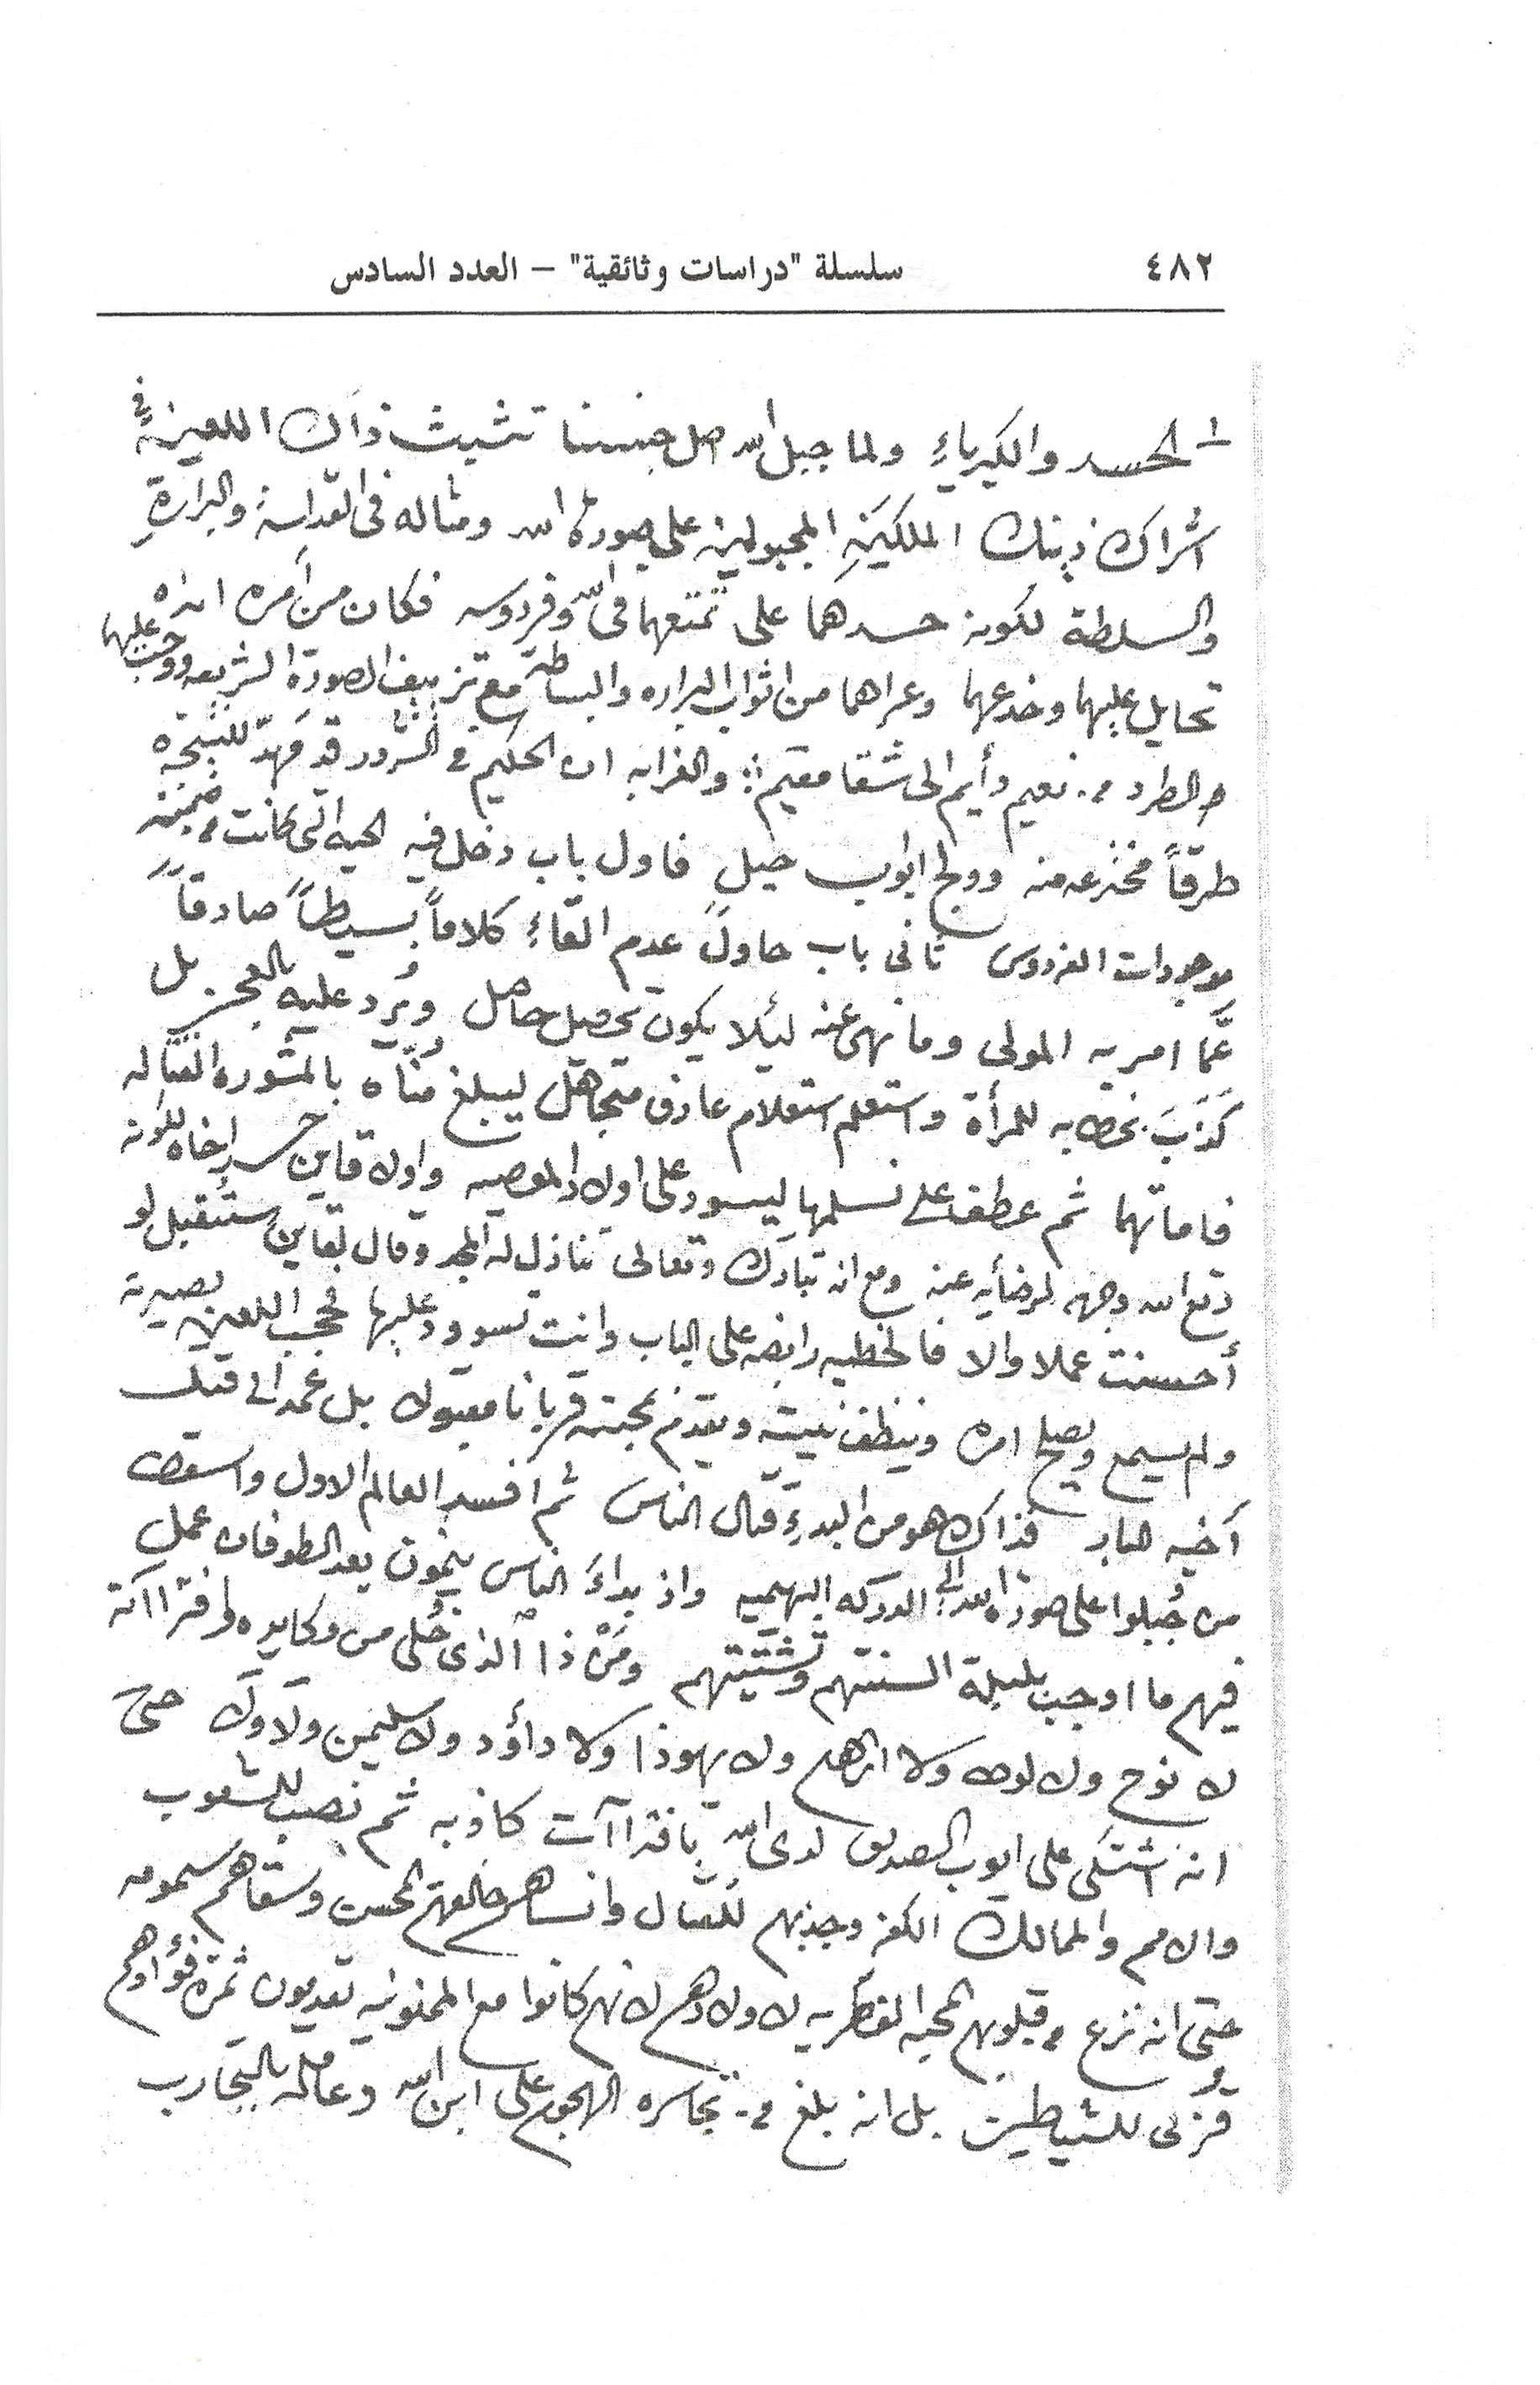 ٤٨٢ سلسلة "دراسات وثائقية" – العدد السادس
الحسد والكبرياءِ ولما جبل الله اصل جنسنا تشبث ذاك اللعين في
اشراك ذينك الملكين المجبولين على صورة الله ومثاله في القداسة والبرارةِ
والسلطة لكونه حسدهما على تمتعهما في الله وفردوسه فكان من أمره انه
تحايل عليهما وخدعهما وعراهما من اثواب البراره والبساطة مع تزييف الصورة الشريفه ووجب عليهما
الطرد من نعيم دأيم الى شقا مقيم والغرابه ان الحكيم في الشرور قد مهدّ للنتيجه
طرقاً مخترعه منه وولج ابواب حيل فاول باب دخل فيه الحيه التي كانت من ضمن
موجودات الفردوس ثانى باب حاول عدم القاءِ كلاماً بسيطاً صادقاً
عمَّا امر به المولى وما نهى عنه ليئلا يكون تحصيل حاصل ويُرد عليه بالعجز بل
كذَبَ بخطابه للمرأة واستعلم استعلام عارف متجاهل ليبلغ مُنّاه بالمشوره القتاله
فاماتهما ثم عطف على نسلهما ليسود على اولاد المعصيه واولا قاين حسد اخاه لكونه
رفع الله وجهه لرضأيه عنه ومع انه تبارك وتعالى تنازل له المجد وقال لقاين ستُقبل لو
أحسنت عملا والا فالخطيه رابضه على الباب وانت تسوود عليها فحجب اللعين بصيرته
ولم يسمع ويصلح امره وينظف نيته ويقدم بمحبته قربانا مقبولا بل عمد الى قتل
أخيه البار فذاك هو من البدءِ قتال الناس ثم افسد العالم الاول واسقط
من جُبلوا على صورة الله الى الدركه البهيميه واذ بداءَ الناس ينمون بعد الطوفان عمل
فيهم ما اوجب بلبلة السنتهم وتشتيتهم ومَنْ ذا الذى خُلى من مكايده وافتراآته
لا نوح ولا لوط ولا ابراهيم ولا يهوذا ولا داؤد ولا سليمن ولا ولا حتى
انه اشتكى على ايوب الصديق لدى الله بافتراآت كاذبه ثم نصب للشعوب
والامم والممالك الكفر وجذبهم للضلال وانساهم خالقهم المحسن وسقاهم سمومه
حتى انه نزع من قلوبهم المحبه الفطريه لاولادهم لانهم كانوا مع الممنونيه يقدمون ثمرة فؤادهم
قربى للشياطين بل انه بلغ من تجاسره الهجوم على ابن الله وعامله بالتجارب